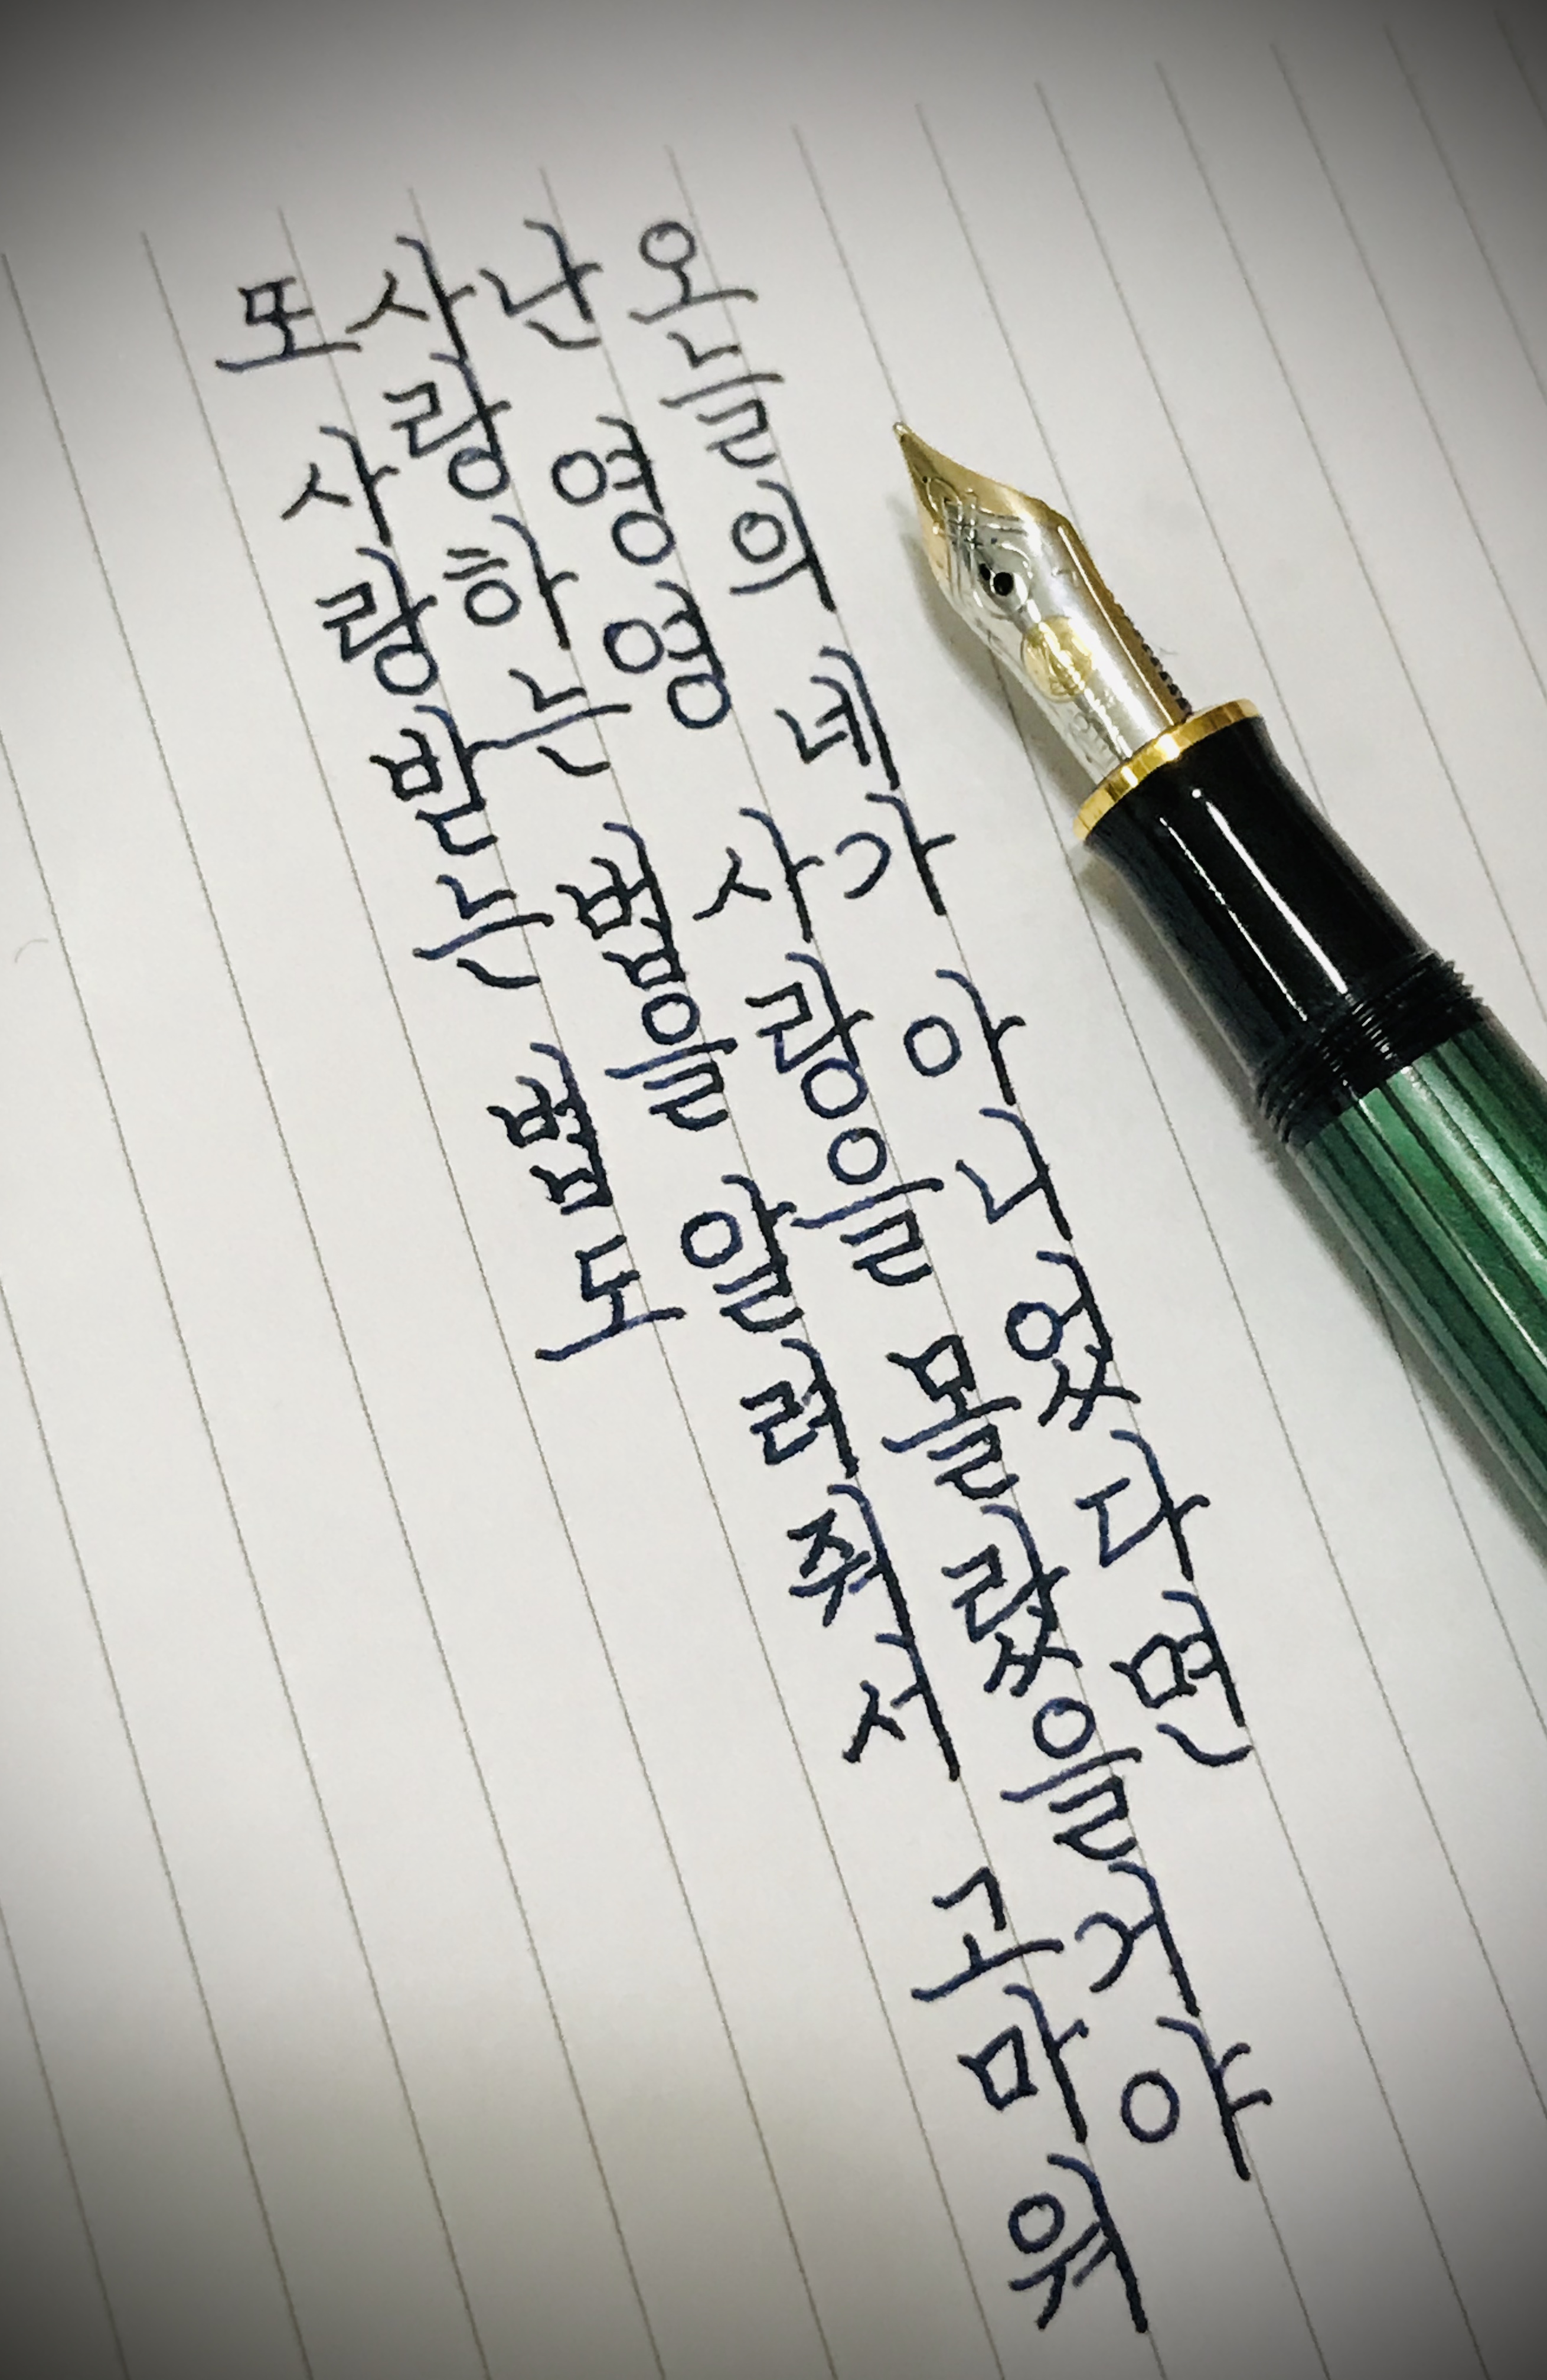 오늘의 네가 아니었다면
난 영영 사랑을 몰랐을거야
사랑하는 법을 알려줘서 고마워
또 사랑받는 법도